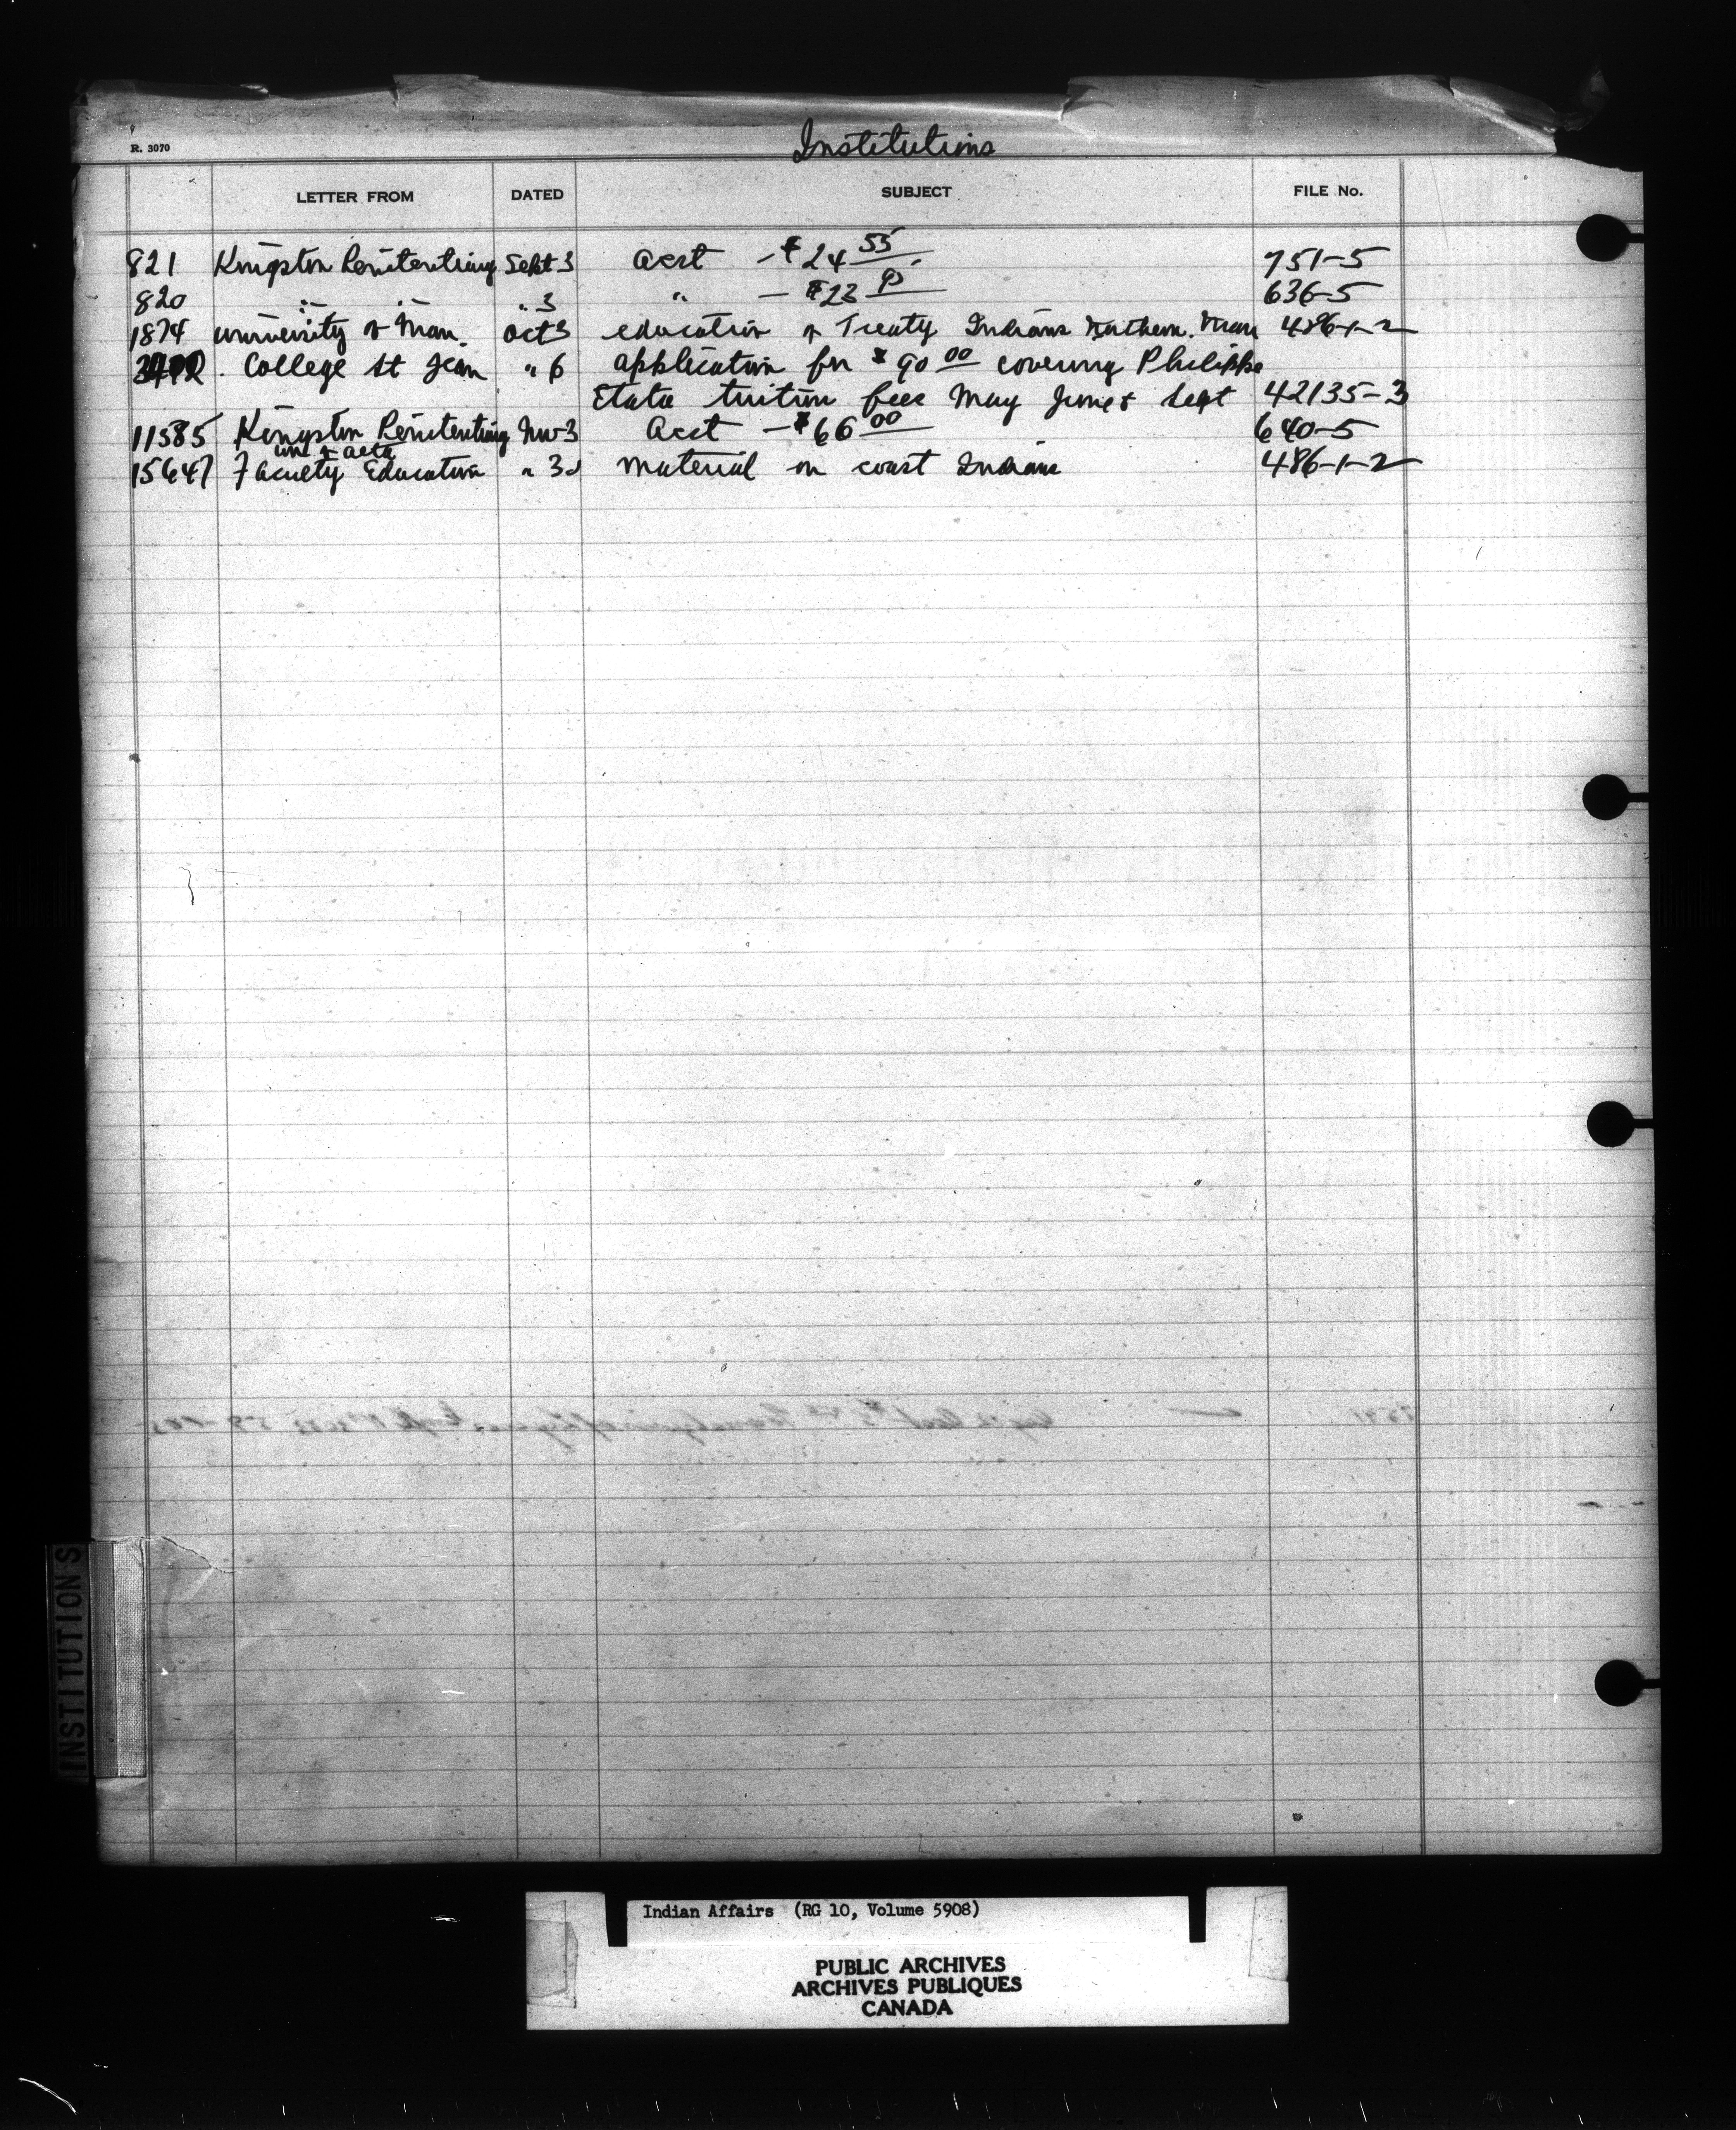 R. 3070
Institutions
LETTER FROM DATED SUBJECT FILE No.
821 Kingston Penitentiary Sept 3 acct - $24 55 751-5
820 " " " 3 " - $23 636-5
1874 university of Man. Oct 3 education of Treaty Indians Northern. Man 486-1-2
College St Jean " 6 application for $90 00 covering Philippe
Etata tuition fees May June & Sept 42135-3
11585 Kingston Penitentiary Nov 3 acct - $66 00 640-5
uni of alta
15647 Faculty Education " 30 material on coast Indians 486-1-2
INSTITUTIONS
Indian Affairs (RG 10, Volume 5908)
PUBLIC ARCHIVES
ARCHIVES PUBLIQUES
CANADA